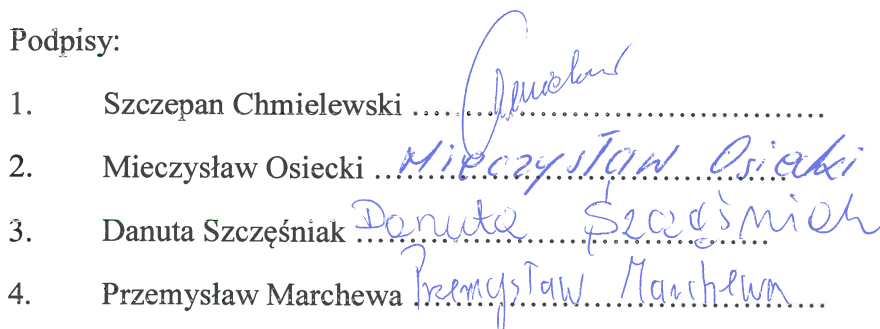 Podpisy:
1. Szczepan Chmielewski ........................................
2. Mieczysław Osiecki Mieczysław Osiecki
3. Danuta Szczęśniak Danuta Szczęśniak
4. Przemysław Marchewa Przemysław Marchewa